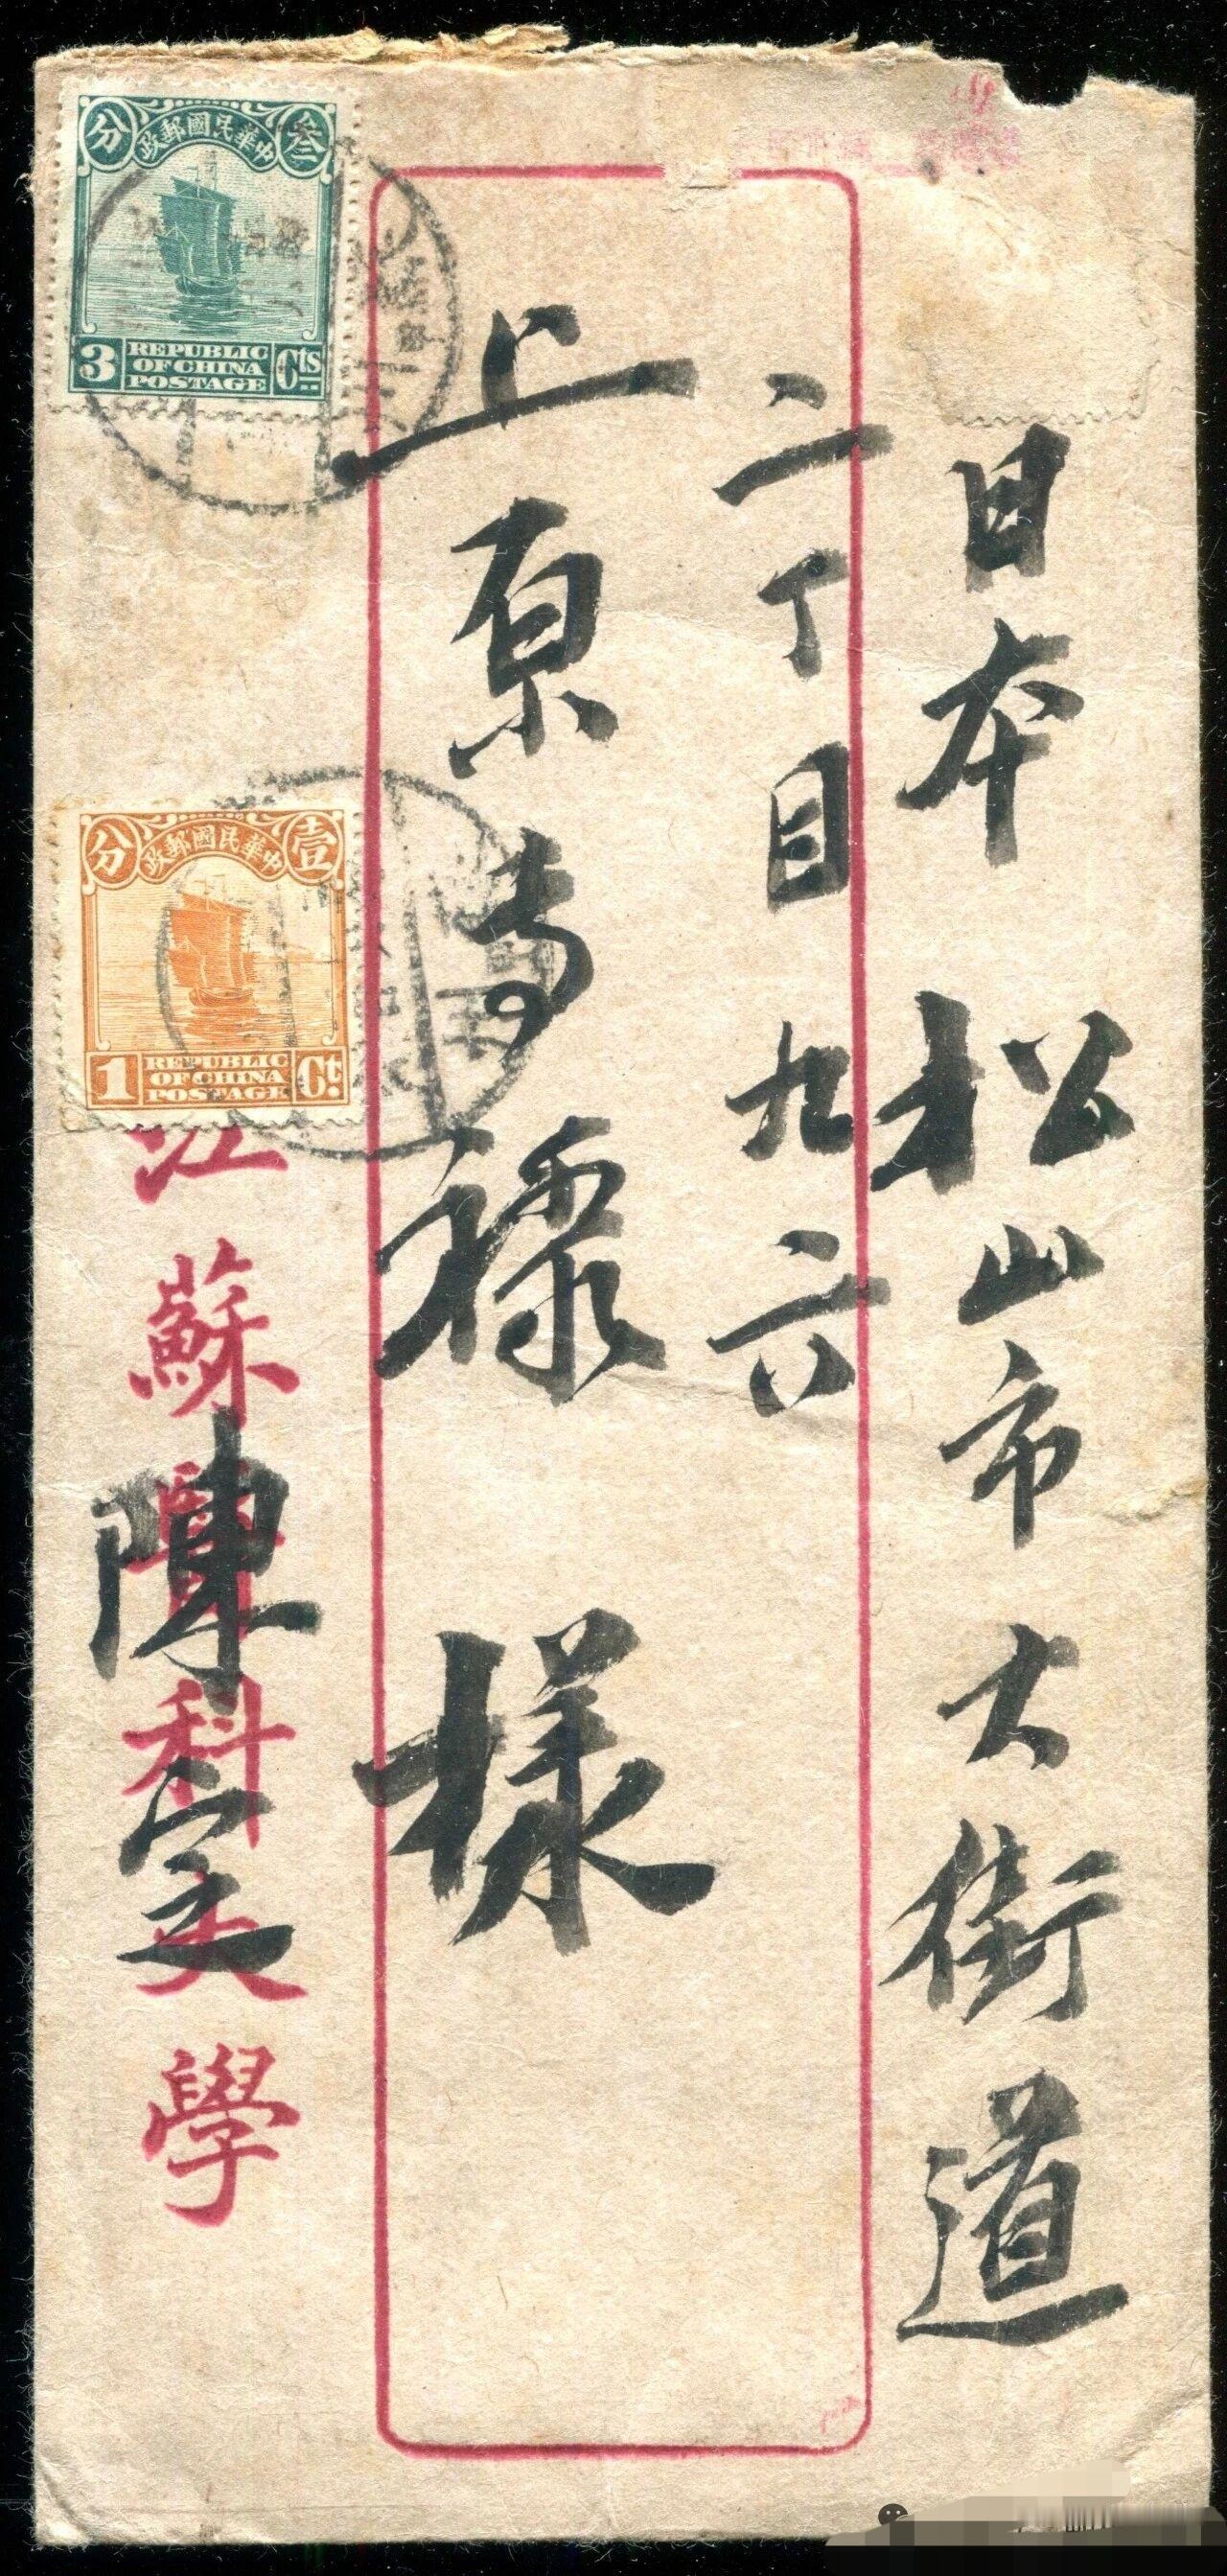 日本 松山市大街道
二丁目九六
上原专禄 樣
江蘇醫科大學
陳定
中華民國郵政
叁分
3 REPUBLIC OF CHINA POSTAGE Cts
中華民國郵政
壹分
1 REPUBLIC OF CHINA POSTAGE Ct.